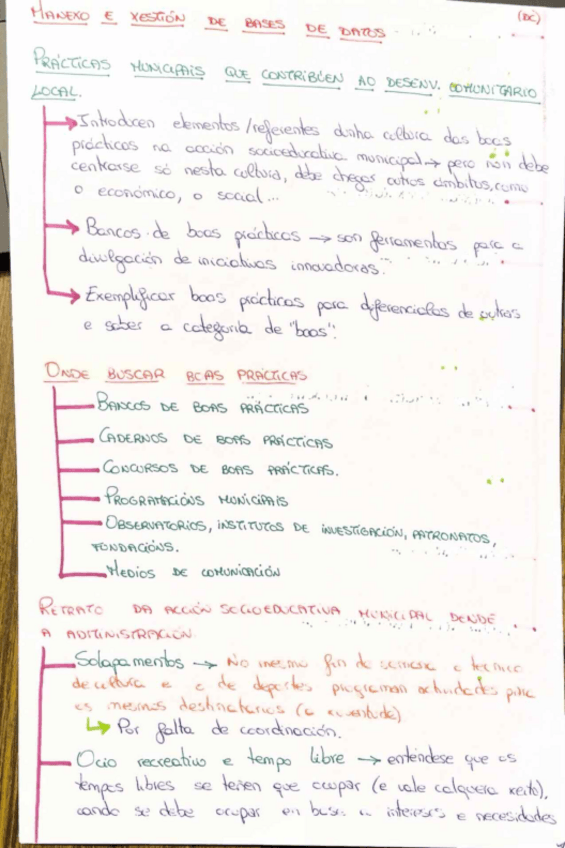 MANEXO E XESTIÓN DE BASES DE DATOS
(DC)
PRÁCTICAS MUNICIPAIS QUE CONTRIBÚEN AO DESENV. COMUNITARIO
LOCAL.
Introducen elementos/referentes dunha cultura das boas
prácticas na acción socioeducativa municipal → pero non debe
centrarse só nesta cultura, debe chegar outros ámbitos, como
o económico, o social...
Bancos de boas prácticas → son ferramentas para a
divulgación de iniciativas innovadoras.
Exemplificar boas prácticas para diferencialas de outras
e saber a categoría de "boas".
ONDE BUSCAR BOAS PRÁCTICAS
BANCOS DE BOAS PRÁCTICAS
CADERNOS DE BOAS PRÁCTICAS
CONCURSOS DE BOAS PRÁCTICAS.
PROGRAMACIÓNS MUNICIPAIS
OBSERVATORIOS, INSTITUTOS DE INVESTIGACIÓN, PATRONATOS,
FUNDACIÓNS.
MEDIOS DE COMUNICACIÓN
RETRATO DA ACCIÓN SOCIOEDUCATIVA MUNICIPAL DENDE
A ADMINISTRACIÓN.
Solapamentos → No mesmo fin de semana o técnico
de cultura e o de deportes programan actividades para
os mesmos destinatarios (a xuventude)
Por falta de coordinación.
Ocio recreativo e tempo libre → enténdese que os
tempos libres se teñen que ocupar (e vale calquera xeito),
cando se debe ocupar en base a intereses e necesidades